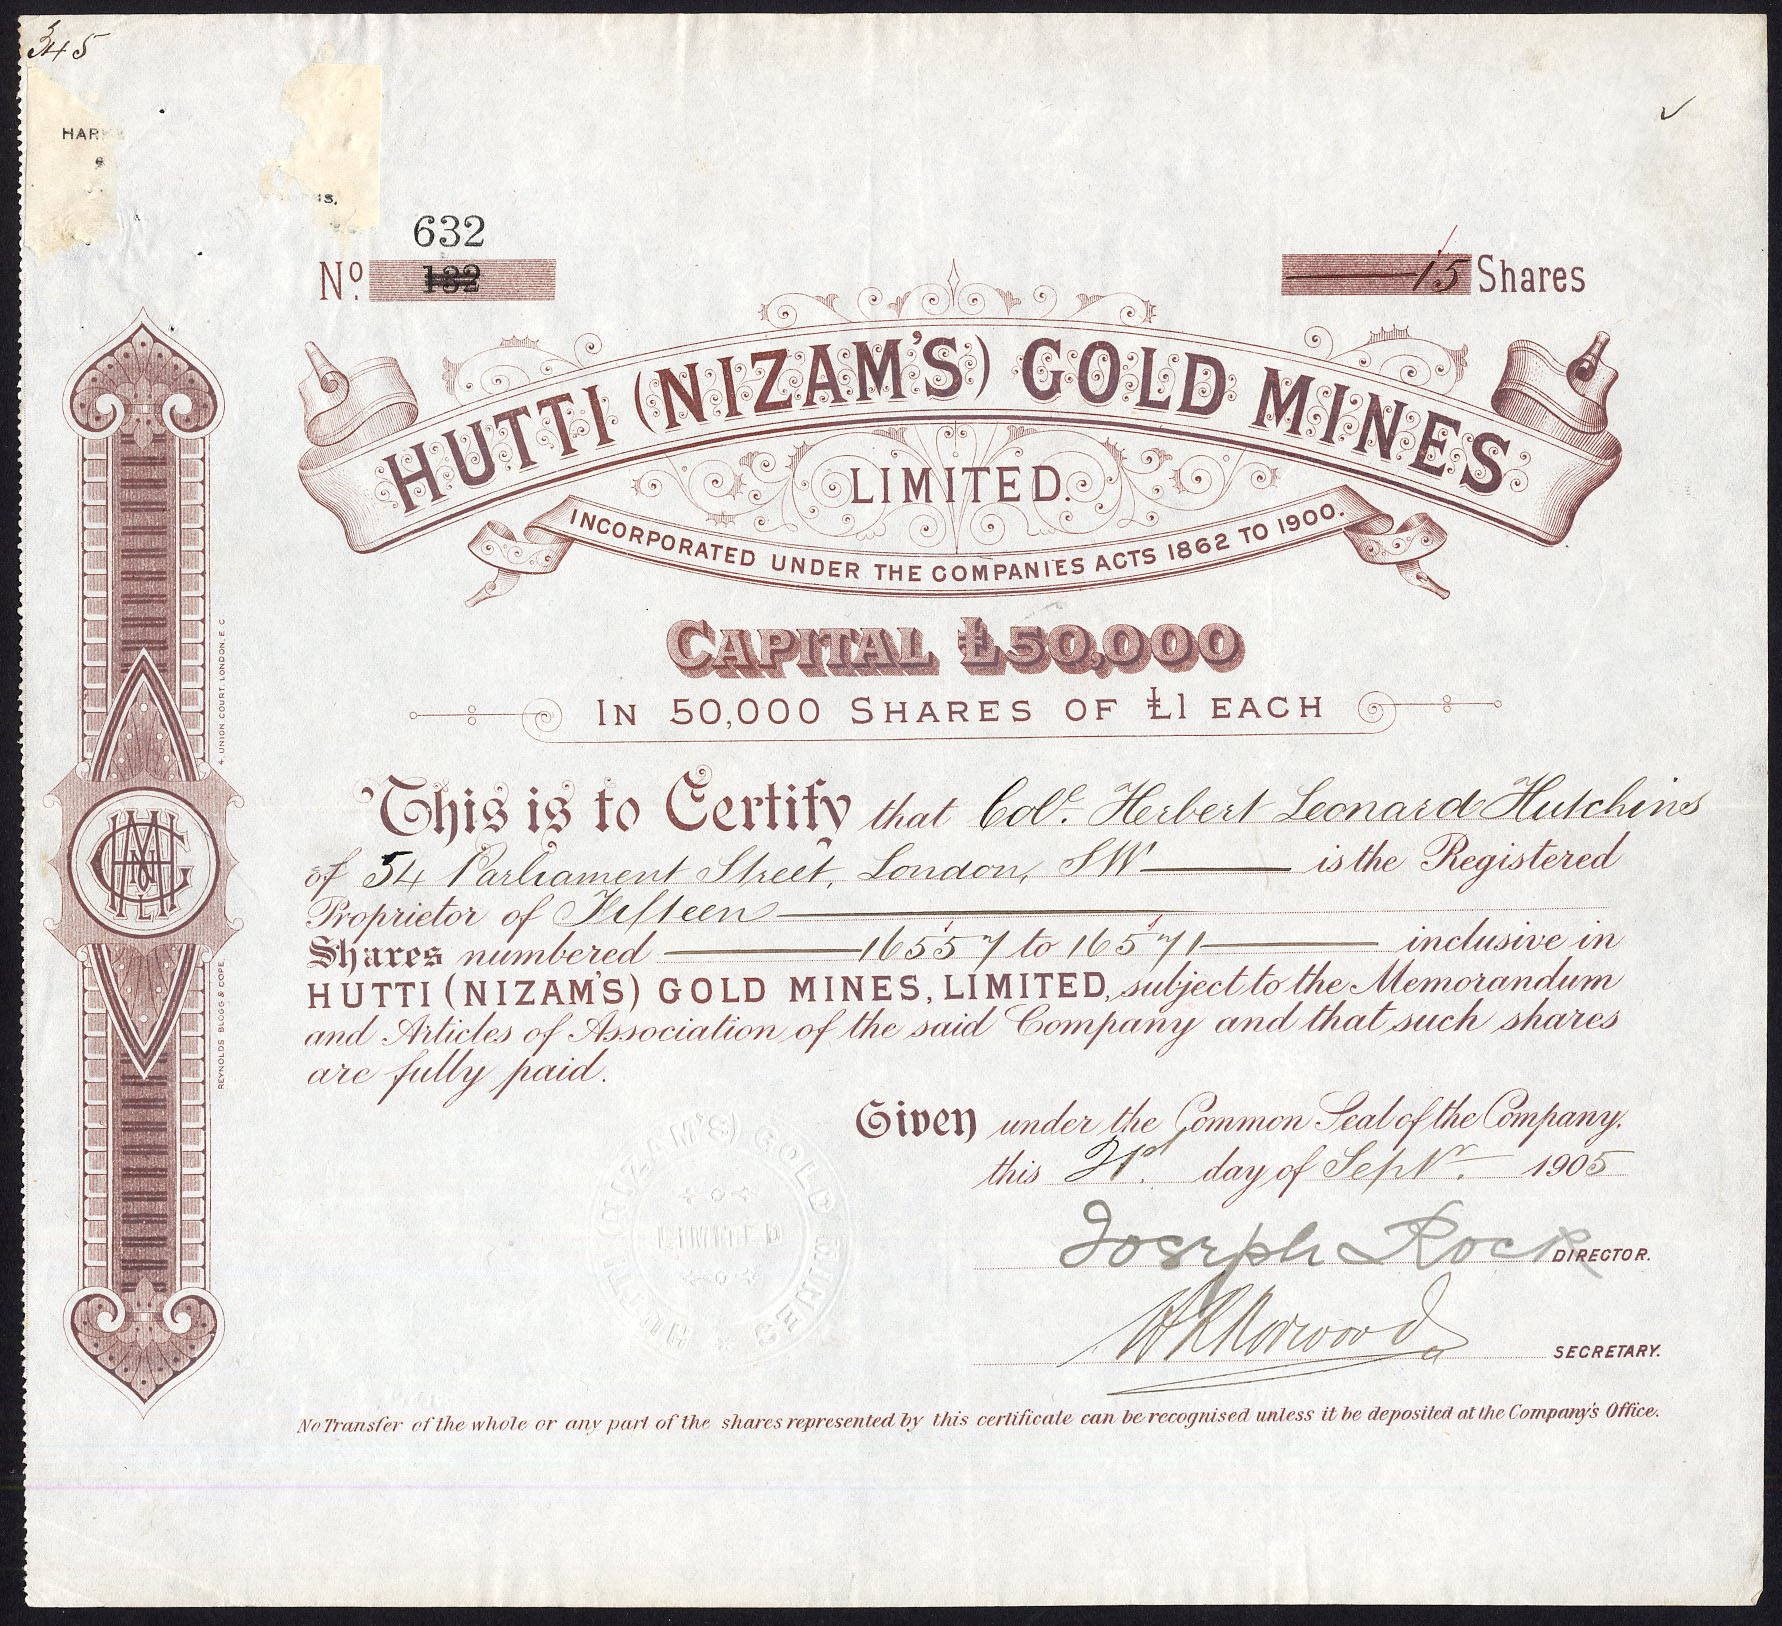 345
HAR
&
632
No. 132
15 Shares
HUTTI (NIZAM'S) GOLD MINES
LIMITED.
INCORPORATED UNDER THE COMPANIES ACTS 1862 TO 1900.
CAPITAL £50,000
IN 50,000 SHARES OF £1 EACH
This is to Certify that Col. Herbert Leonard Hutchins
of 54 Parliament Street, London, SW is the Registered
Proprietor of Fifteen
Shares numbered 16557 to 16571 inclusive in
HUTTI (NIZAM'S) GOLD MINES, LIMITED, subject to the Memorandum
and Articles of Association of the said Company and that such shares
are fully paid.
Given under the Common Seal of the Company,
this 21st. day of Septr. 1905
Joseph Rock DIRECTOR.
Norwood SECRETARY.
No Transfer of the whole or any part of the shares represented by this certificate can be recognised unless it be deposited at the Company's Office.
HUTTI (NIZAM'S) GOLD MINES
LIMITED
REYNOLDS BLOGG & COPE, 4, UNION COURT, LONDON, E.C.